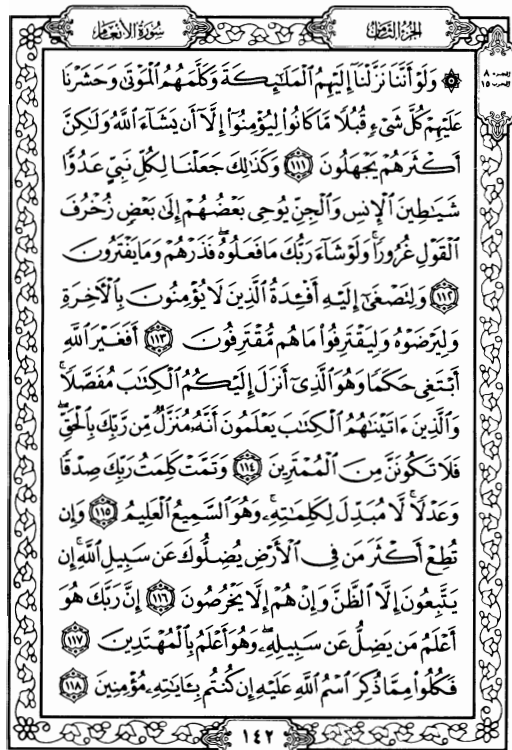 سُورَةُ الأَنْعَامِ الجُزْءُ الثَّامِنُ
۞ وَلَوْ أَنَّنَا نَزَّلْنَآ إِلَيْهِمُ ٱلْمَلَٰٓئِكَةَ وَكَلَّمَهُمُ ٱلْمَوْتَىٰ وَحَشَرْنَا
عَلَيْهِمْ كُلَّ شَىْءٍ قُبُلًا مَّا كَانُوا۟ لِيُؤْمِنُوٓا۟ إِلَّآ أَن يَشَآءَ ٱللَّهُ وَلَٰكِنَّ
أَكْثَرَهُمْ يَجْهَلُونَ ١١١ وَكَذَٰلِكَ جَعَلْنَا لِكُلِّ نَبِىٍّ عَدُوًّا
شَيَٰطِينَ ٱلْإِنسِ وَٱلْجِنِّ يُوحِى بَعْضُهُمْ إِلَىٰ بَعْضٍ زُخْرُفَ
ٱلْقَوْلِ غُرُورًا ۚ وَلَوْ شَآءَ رَبُّكَ مَا فَعَلُوهُ ۖ فَذَرْهُمْ وَمَا يَفْتَرُونَ
١١٢ وَلِتَصْغَىٰٓ إِلَيْهِ أَفْـِٔدَةُ ٱلَّذِينَ لَا يُؤْمِنُونَ بِٱلْءَاخِرَةِ
وَلِيَرْضَوْهُ وَلِيَقْتَرِفُوا۟ مَا هُم مُّقْتَرِفُونَ ١١٣ أَفَغَيْرَ ٱللَّهِ
أَبْتَغِى حَكَمًا وَهُوَ ٱلَّذِىٓ أَنزَلَ إِلَيْكُمُ ٱلْكِتَٰبَ مُفَصَّلًا ۚ
وَٱلَّذِينَ ءَاتَيْنَٰهُمُ ٱلْكِتَٰبَ يَعْلَمُونَ أَنَّهُۥ مُنَزَّلٌ مِّن رَّبِّكَ بِٱلْحَقِّ ۖ
فَلَا تَكُونَنَّ مِنَ ٱلْمُمْتَرِينَ ١١٤ وَتَمَّتْ كَلِمَتُ رَبِّكَ صِدْقًا
وَعَدْلًا ۚ لَّا مُبَدِّلَ لِكَلِمَٰتِهِۦ ۚ وَهُوَ ٱلسَّمِيعُ ٱلْعَلِيمُ ١١٥ وَإِن
تُطِعْ أَكْثَرَ مَن فِى ٱلْأَرْضِ يُضِلُّوكَ عَن سَبِيلِ ٱللَّهِ ۚ إِن
يَتَّبِعُونَ إِلَّا ٱلظَّنَّ وَإِنْ هُمْ إِلَّا يَخْرُصُونَ ١١٦ إِنَّ رَبَّكَ هُوَ
أَعْلَمُ مَن يَضِلُّ عَن سَبِيلِهِۦ ۖ وَهُوَ أَعْلَمُ بِٱلْمُهْتَدِينَ ١١٧
فَكُلُوا۟ مِمَّا ذُكِرَ ٱسْمُ ٱللَّهِ عَلَيْهِ إِن كُنتُم بِـَٔايَٰتِهِۦ مُؤْمِنِينَ ١١٨
١٤٢